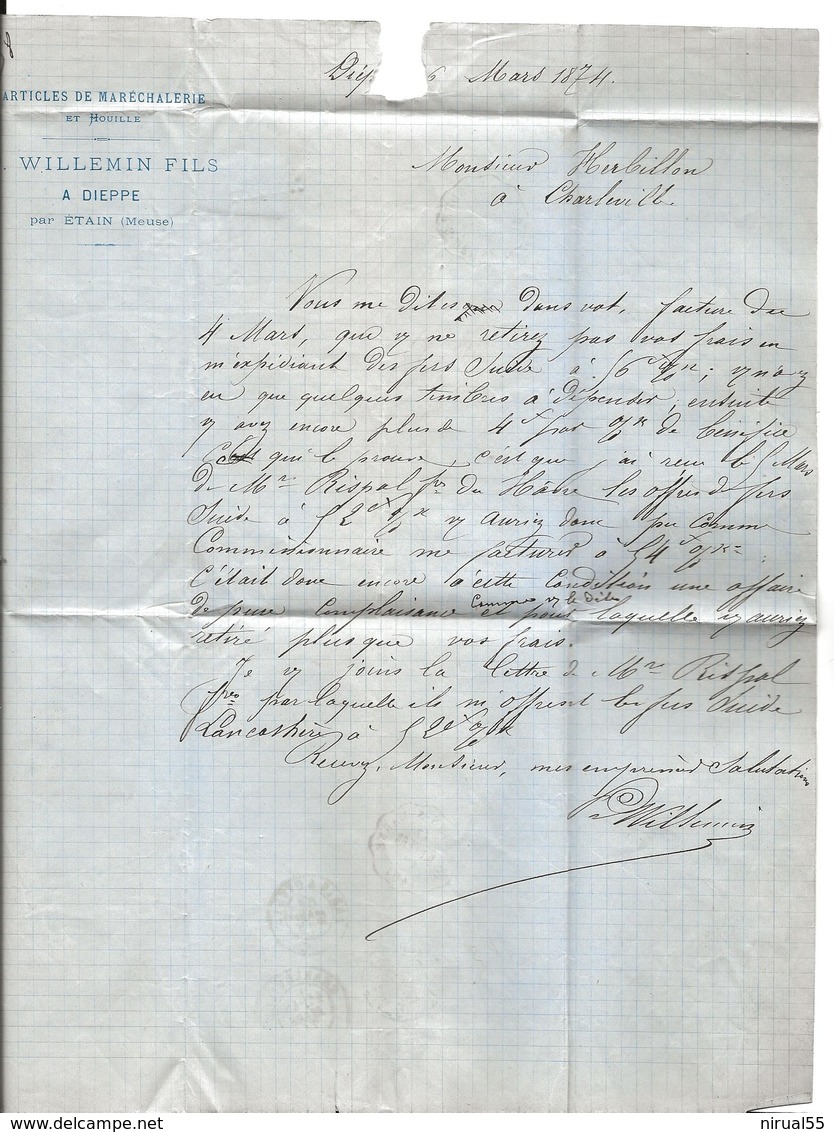 ARTICLES DE MARÉCHALERIE
ET HOUILLE
WILLEMIN FILS
A DIEPPE
par ÉTAIN (Meuse)
Diép 6 Mars 1874.
Monsieur Herbillon
à Charleville
Vous me dites dans vot. facture du
4 Mars, que vs ne retirez pas vos frais en
m'expédiant des fers Suède à 56 ; vs n'avez
eu que quelques timbres à dépenser, ensuite
vs avez encore plus de 4 par de bénéfice
C'est qui le prouve, c'est que j'ai reçu le 5 Mars
de Mrs Rispal frs du Hâvre les offres de fers
Suède à 52 vs auriez donc pu comme
Commissionnaire me facturer à 54
c'était donc encore à cette Condition une affaire
de pure complaisance comme vs le dites et pour laquelle vs auriez
retiré plus que vos frais.
Je vs joins la lettre de Mrs Rispal
frères par laquelle ils m'offrent les fers Suède
Lancashère à 52
Recevez, Monsieur, mes empressées Salutations
Willemin
nirual55